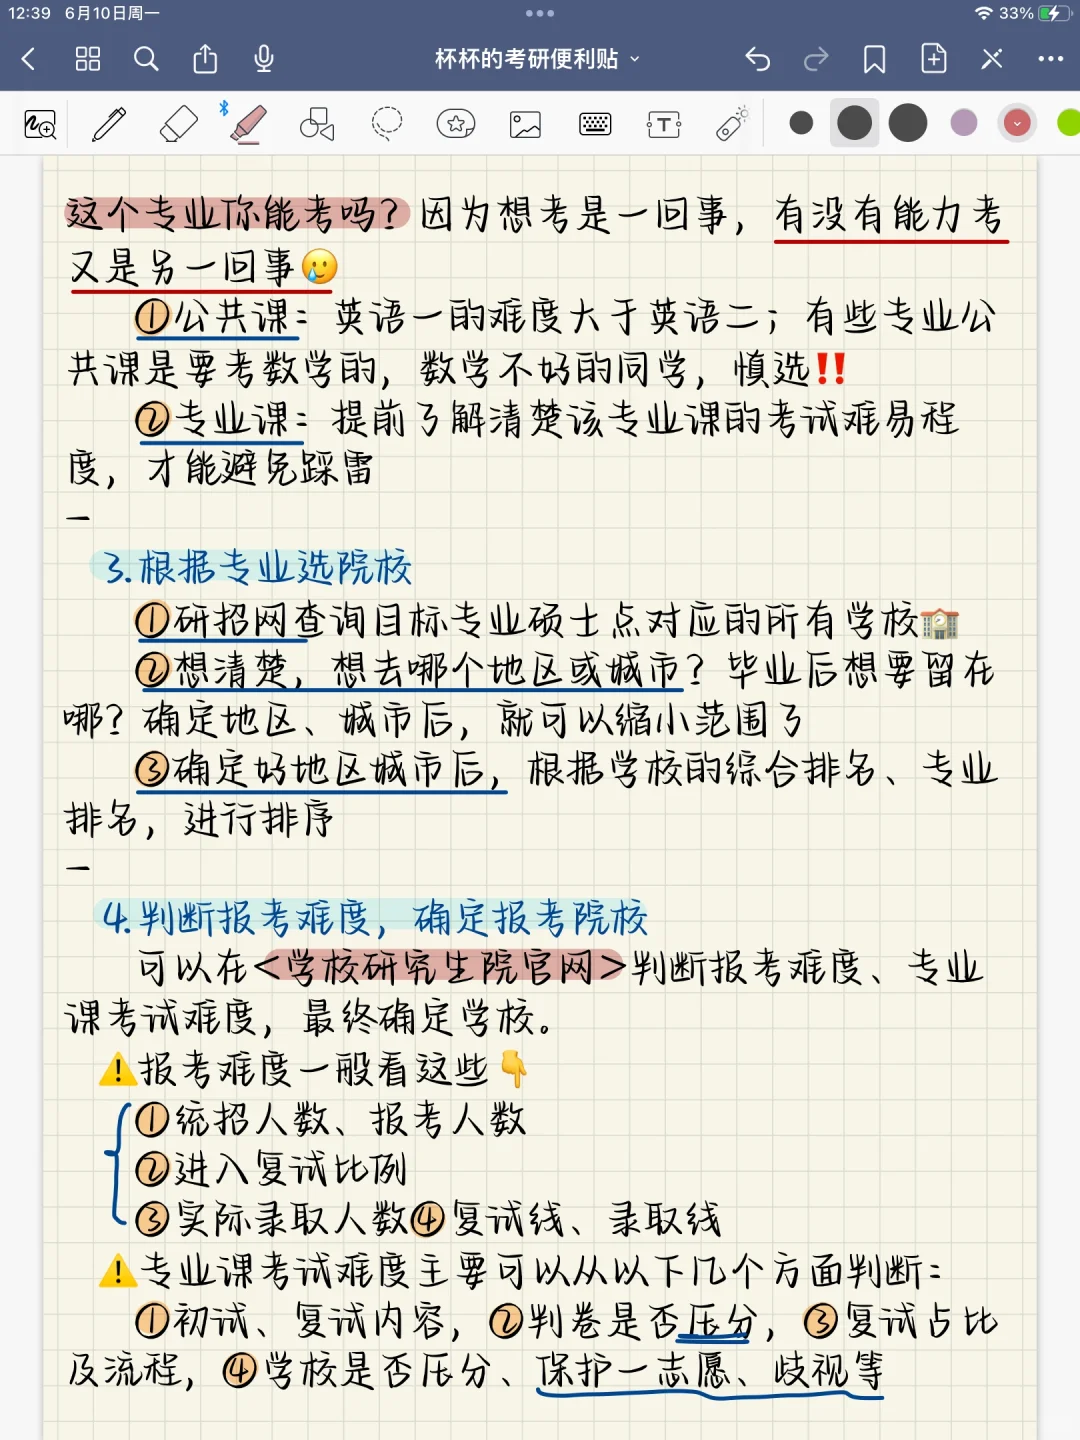 12:39 6月10日周一
33%
杯杯的考研便利贴
这个专业你能考吗？因为想考是一回事，有没有能力考
又是另一回事🥲
①公共课：英语一的难度大于英语二；有些专业公
共课是要考数学的，数学不好的同学，慎选‼️
②专业课：提前了解清楚该专业课的考试难易程
度，才能避免踩雷
—
3.根据专业选院校
①研招网查询目标专业硕士点对应的所有学校🏫
②想清楚，想去哪个地区或城市？毕业后想要留在
哪？确定地区、城市后，就可以缩小范围了
③确定好地区城市后，根据学校的综合排名、专业
排名，进行排序
—
4.判断报考难度，确定报考院校
可以在<学校研究生院官网>判断报考难度、专业
课考试难度，最终确定学校。
⚠️报考难度一般看这些👇
①统招人数、报考人数
②进入复试比例
③实际录取人数④复试线、录取线
⚠️专业课考试难度主要可以从以下几个方面判断：
①初试、复试内容，②判卷是否压分，③复试占比
及流程，④学校是否压分、保护一志愿、歧视等